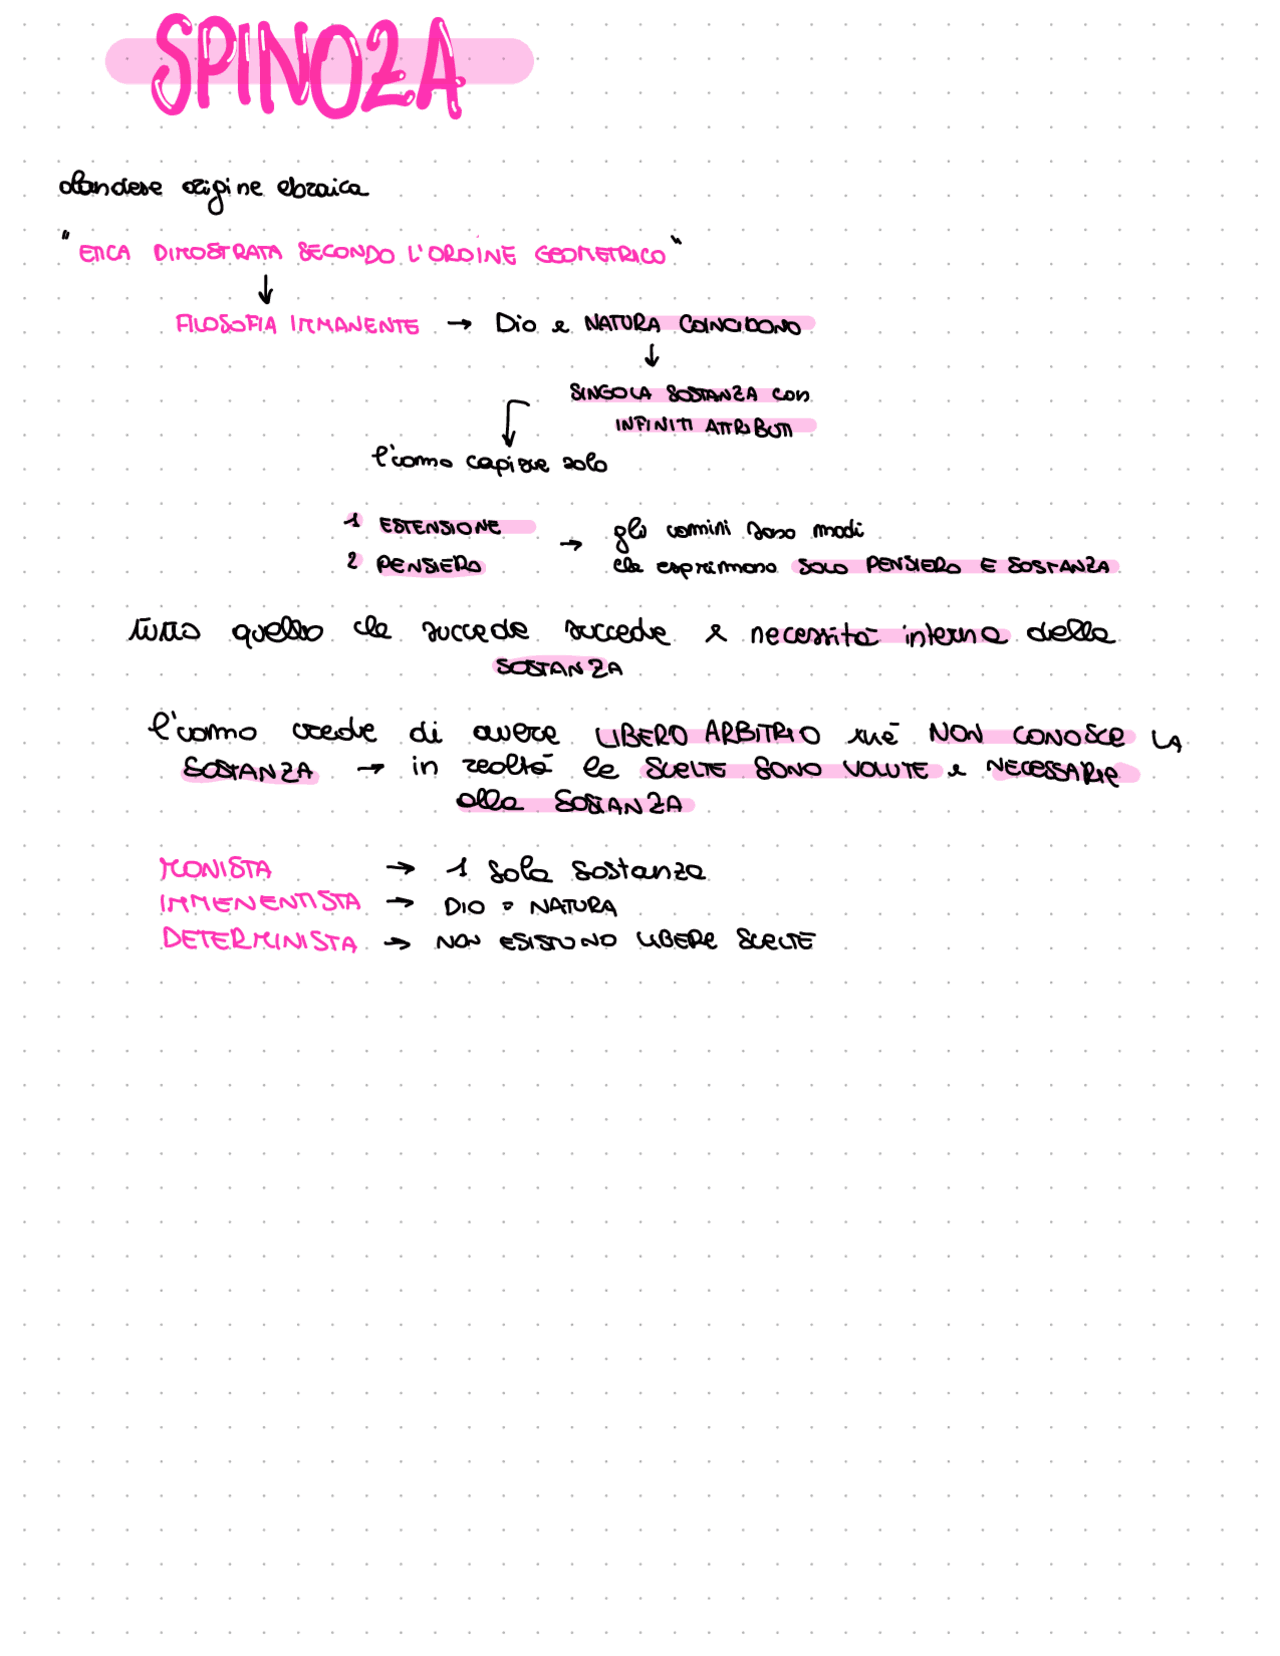 SPINOZA
olandese origine ebraica
"ETICA DIMOSTRATA SECONDO L'ORDINE GEOMETRICO"
↓
FILOSOFIA IMMANENTE → Dio e NATURA COINCIDONO
↓
SINGOLA SOSTANZA con
INFINITI ATTRIBUTI
l'uomo capisce solo
1 ESTENSIONE
2 PENSIERO
→ gli uomini sono modi
che esprimono SOLO PENSIERO E SOSTANZA
tutto quello che succede succede x necessità interna della
SOSTANZA
l'uomo crede di avere LIBERO ARBITRIO NON CONOSCE LA
SOSTANZA → in realtà le SCELTE SONO VOLUTE e NECESSARIE
alla SOSTANZA
MONISTA → 1 sola sostanza
IMMENENTISTA → DIO = NATURA
DETERMINISTA → NON ESISTONO LIBERE SCELTE